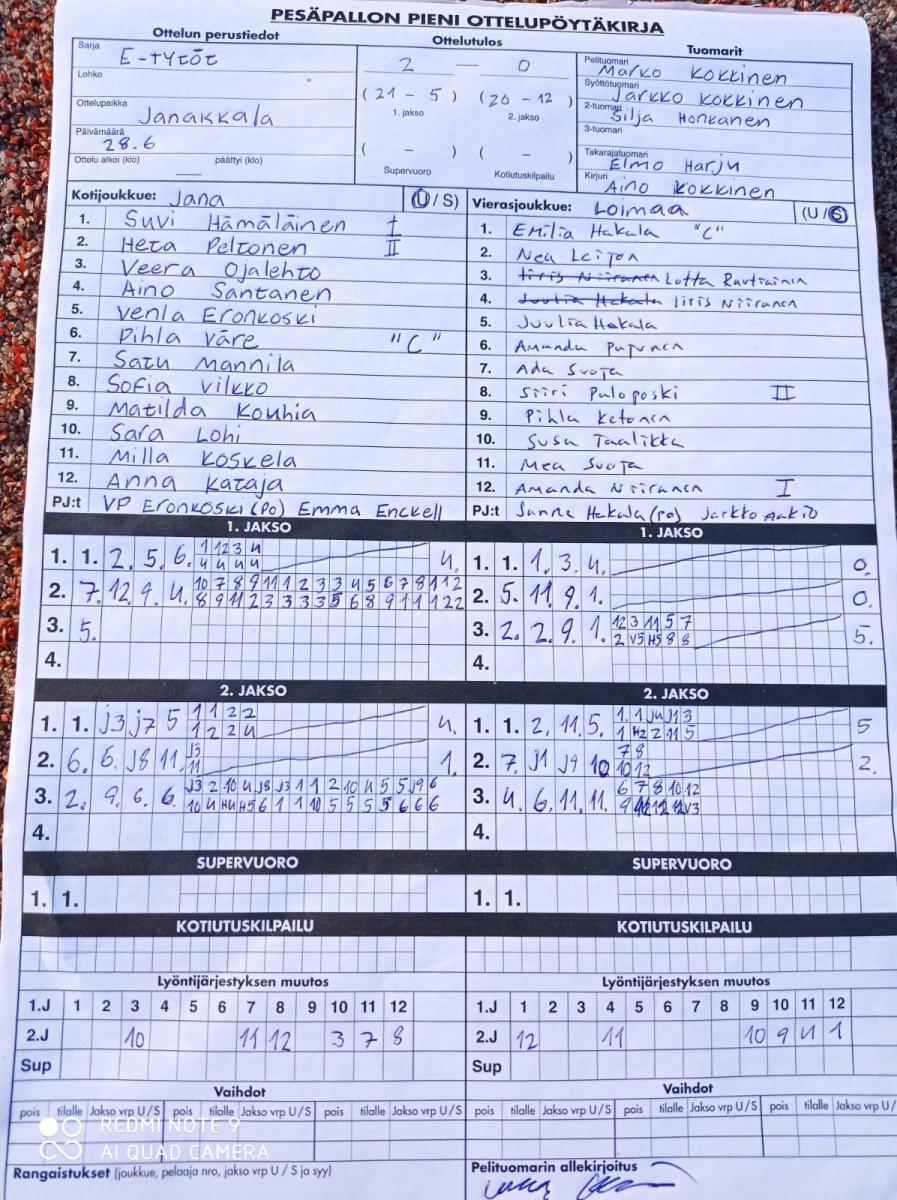 PESÄPALLON PIENI OTTELUPÖYTÄKIRJA
Ottelun perustiedot
Sarja E-tytöt
Lohko
Ottelupaikka Janakkala
Päivämäärä 28.6
Ottelu alkoi (klo) päättyi (klo)
Ottelutulos
2 — 0
(21 - 5) (20 - 12)
1. jakso 2. jakso
( - ) ( - )
Supervuoro Kotiutuskilpailu
Tuomarit
Pelituomari Marko Kokkinen
Syöttötuomari Jarkko Kokkinen
2-tuomari Silja Honkanen
3-tuomari
Takarajatuomari Elmo Harju
Kirjuri Aino Kokkinen
Kotijoukkue: Jana (U / S)
1. Suvi Hämäläinen I
2. Heta Peltonen II
3. Veera Ojalehto
4. Aino Santanen
5. Venla Eronkoski
6. Pihla Väre "C"
7. Satu Mannila
8. Sofia Vilkko
9. Matilda Kouhia
10. Sara Lohi
11. Milla Koskela
12. Anna Kataja
PJ:t VP Eronkoski (Po) Emma Enckell
Vierasjoukkue: Loimaa (U / S)
1. Emilia Hakala "C"
2. Nea
3. Iiris Niiranen Lotta Rautiainen
4. Juulia Hakala Iiris Niiranen
5. Juulia Hakala
6. Amanda
7. Ada Suoja
8. Siiri Paloposki II
9. Pihla Ketonen
10. Susa Taalikka
11. Mea Suoja
12. Amanda Niiranen I
PJ:t Sanna Hakala (po) Jarkko Aakio
1. JAKSO
1. 1. 2. 5. 6. 1 1 2 3 4 4.
4 4 4 4
2. 7. 12. 9. 4. 10 7 8 9 11 1 2 3 3 4 5 6 7 8 1 12
8 9 11 2 3 3 3 3 5 6 8 9 1 1 1 2 2
3. 5.
4.
1. JAKSO
1. 1. 1. 3. 4. 0.
2. 5. 11. 9. 1. 0.
3. 2. 2. 9. 1. 12 3 11 5 7 5.
2 V5 H5 8 8
4.
2. JAKSO
1. 1. J3 J7 5 1 1 2 2 4.
1 2 2 4
2. 6. 6. J8 11. J3 1.
11
3. 2. 9. 6. 6. J3 2 10 4 J8 J3 1 1 2 10 4 5 5 J9 6
10 4 H4 H5 6 1 1 10 5 5 5 5 6 6 6
4.
2. JAKSO
1. 1. 2. 11. 5. 1. 1 J4 J1 3 5
1 H2 2 11 5
2. 7. J1 J9 10 7 8 2.
10 12
3. 4. 6. 11. 11. 6 7 8 10 12
4.
SUPERVUORO
1. 1.
SUPERVUORO
1. 1.
KOTIUTUSKILPAILU
KOTIUTUSKILPAILU
Lyöntijärjestyksen muutos
1.J 1 2 3 4 5 6 7 8 9 10 11 12
2.J 10 11 12 3 7 8
Sup
Lyöntijärjestyksen muutos
1.J 1 2 3 4 5 6 7 8 9 10 11 12
2.J 12 11 10 9 4 1
Sup
Vaihdot
pois tilalle Jakso vrp U / S pois tilalle Jakso vrp U / S pois tilalle Jakso vrp U / S
Vaihdot
pois tilalle Jakso vrp U / S pois tilalle Jakso vrp U / S pois tilalle Jakso vrp U /
REDMI NOTE 9
AI QUAD CAMERA
Rangaistukset (joukkue, pelaaja nro, jakso vrp U / S ja syy)
Pelituomarin allekirjoitus